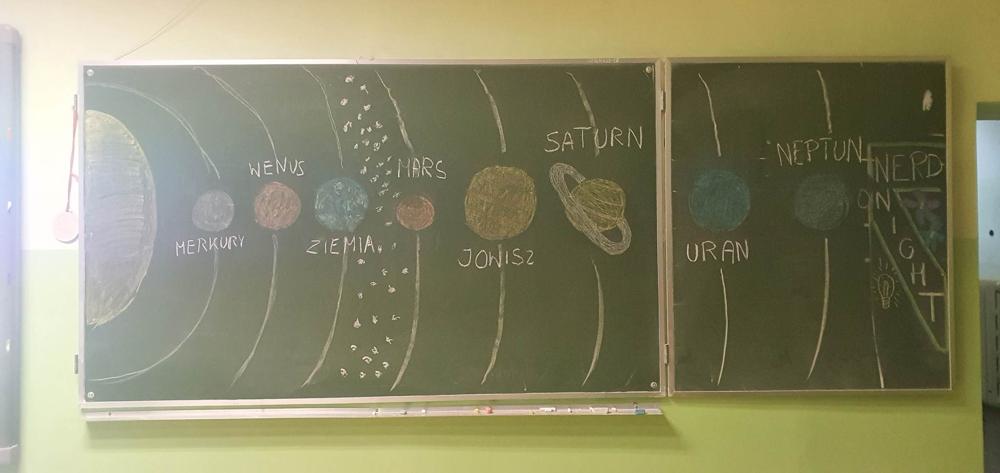 MERKURY
WENUS
ZIEMIA
MARS
JOWISZ
SATURN
URAN
NEPTUN
NERD
NIGHT